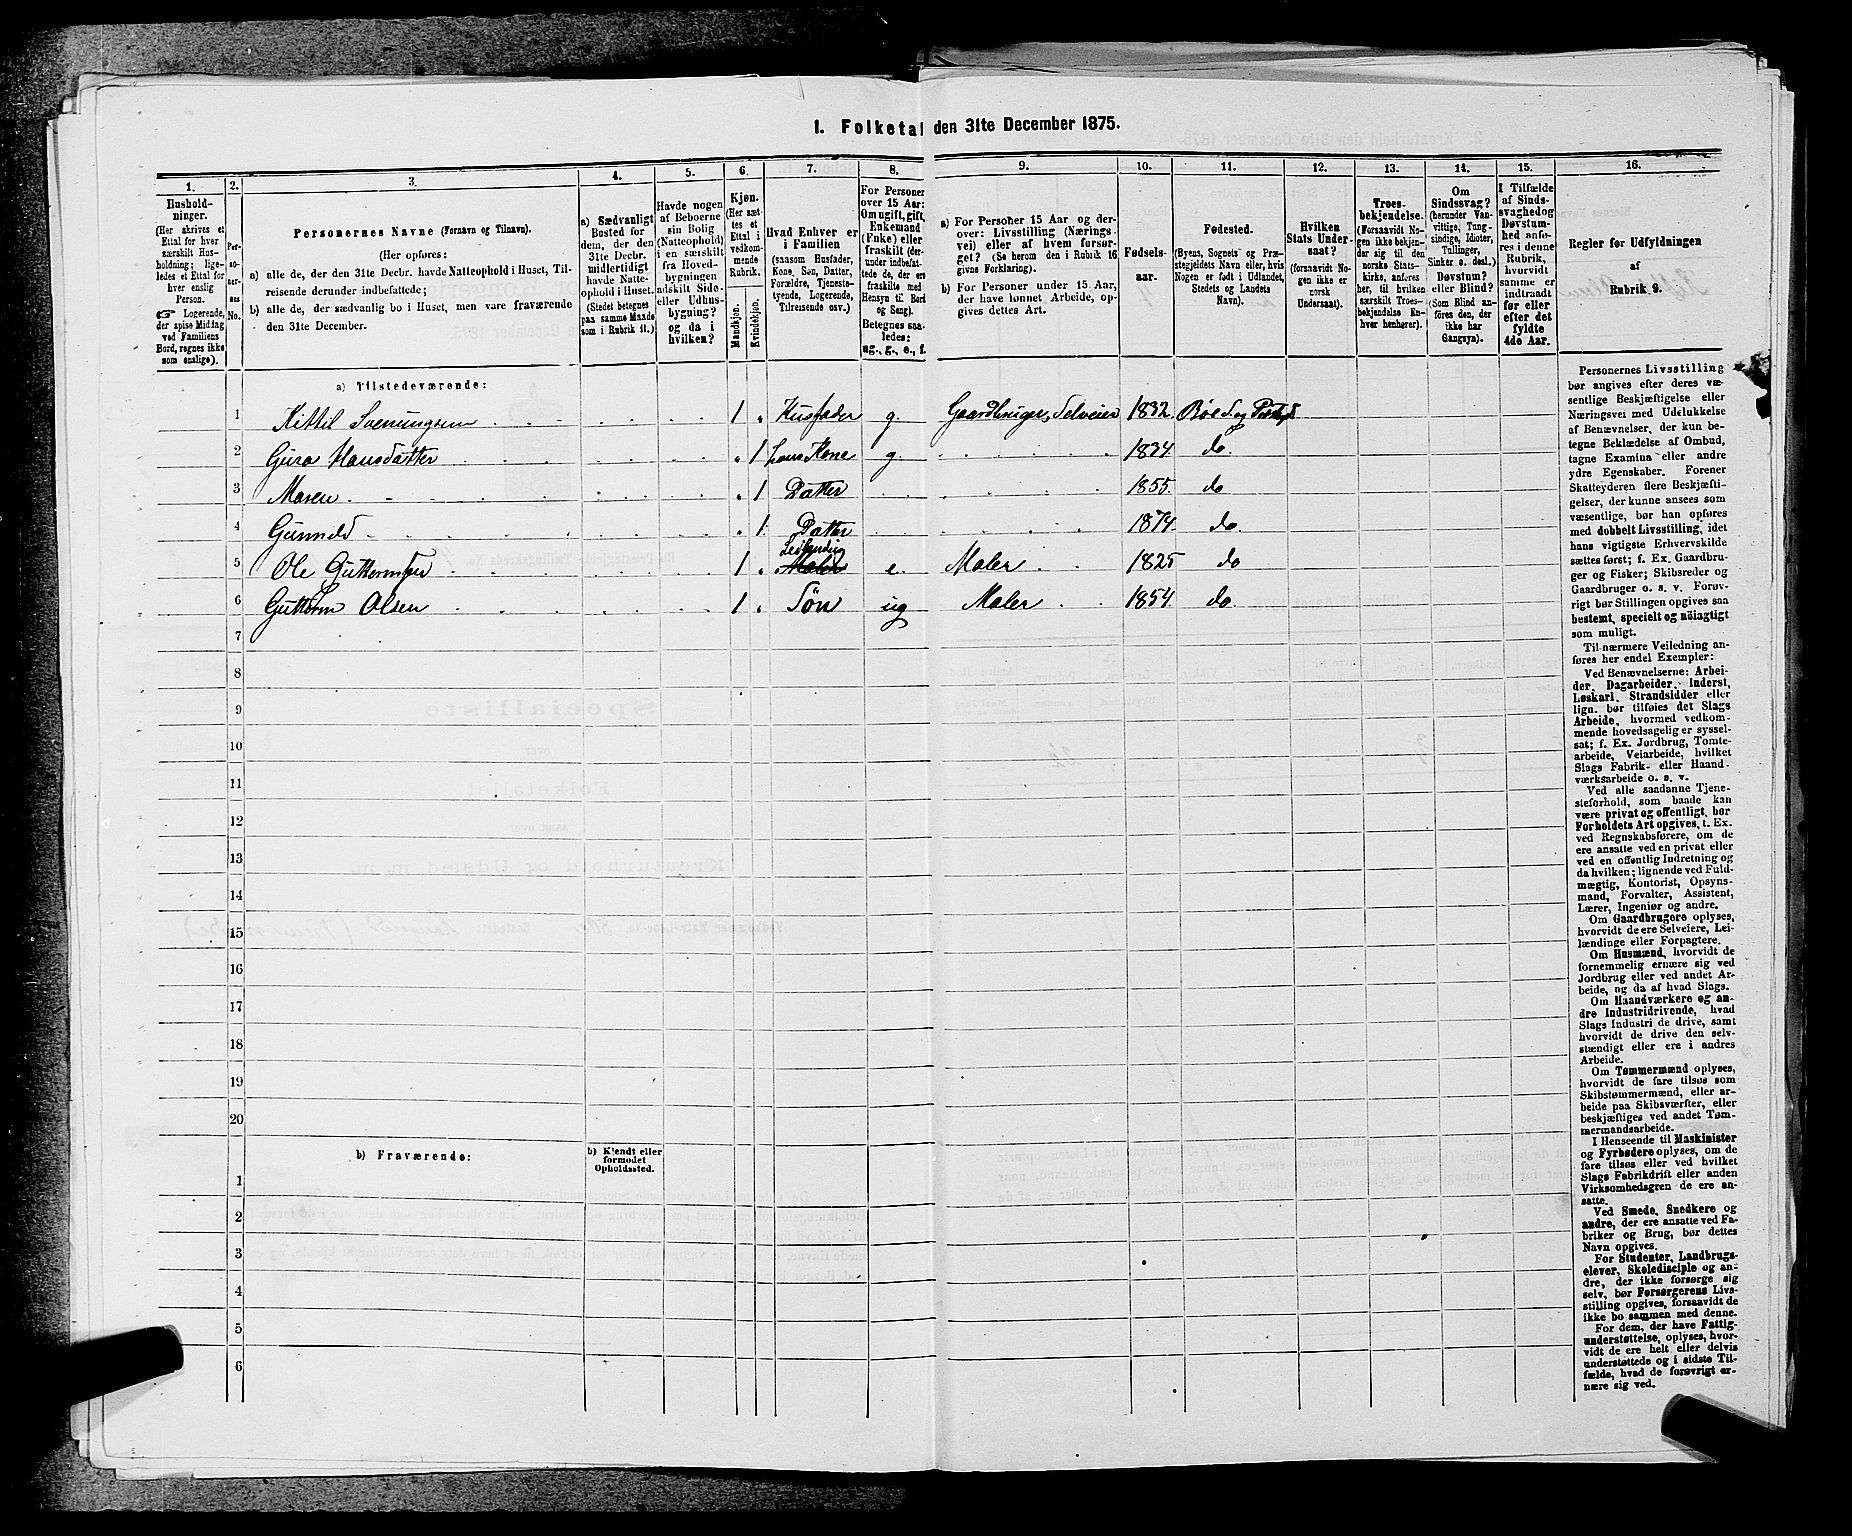 1. Folketal den 31te December 1875.
1. 2. 3. 4. 5. 6. 7. 8. 9. 10. 11. 12. 13. 14. 15. 16.
Husholdninger.
(Her skrives et
Ettal for hver
særskilt Husholdning; ligeledes et Ettal for
hver enslig
Person.
Logerende,
der spise Middag
ved Familiens
Bord, regnes ikke
som enslige).
Personernes No.
Personernes Navne (Fornavn og Tilnavn).
(Her opføres:
a) alle de, der den 31te Decbr. havde Natteophold i Huset, Tilreisende derunder indbefattede;
b) alle de, der sædvanlig bo i Huset, men vare fraværende
den 31te December.
a) Sædvanligt
Bosted for
dem, der den
31te Decbr.
midlertidigt
havde Natteophold i Huset.
(Stedet betegnes
paa samme Maade
som i Rubrik 11.)
Havde nogen
af Beboerne
sin Bolig
(Natteophold)
i en særskilt
fra Hovedbygningen
adskilt Sideeller Udhusbygning?
og da i
hvilken?
Kjøn.
(Her sættes et
Ettal i
vedkommende
Rubrik.
Mandkjøn.
Kvindekjøn.
Hvad Enhver er
i Familien
(saasom Husfader,
Kone, Søn, Datter,
Forældre, Tjenestetyende, Logerende,
Tilreisende osv.
For Personer
over 15 Aar:
Om ugift, gift,
Enkemand
(Enke) eller
fraskilt (derunder indbefattede de, der ere
fraskilte med
Hensyn til Bord
og Seng).
Betegnes saaledes:
ug., g., e., f.
a) For Personer 15 Aar og derover: Livsstilling (Næringsvei) eller af hvem forsørget? (Se herom den i Rubrik 16
givne Forklaring).
b) For Personer under 15 Aar,
der have lønnet Arbeide, opgives dettes Art.
Fødselsaar.
Fødested.
(Byens, Sognets og Præstegjeldets Navn eller, hvis
Nogen er født i Udlandet,
Stedets og Landets
Navn).
Hvilken
Stats Undersaat?
(forsaavidt Nogen ikke er
norsk
Undersaat).
Troesbekjendelse.
(Forsaavidt Nogen ikke bekjender sig til den
norske Statskirke, anføres
her, til hvilken
særskilt Troesbekjendelse Enhver henhører).
Om
Sindssvag?
(herunder Vanvittige, Tungsindige, Idioter,
Tullinger,
Sinker o. desl.)
Døvstum?
eller Blind?
(Som Blind anføres den, der
ikke har
Gangsyn).
I Tilfælde
af Sindssvaghed og
Døvstumhed anføres i denne
Rubrik,
hvorvidt
samme er
indtraadt
før eller
efter det
fyldte
4de Aar.
Regler for Udfyldningen
af
Rubrik 9.
a) Tilstedeværende:
1 Kittil Svenungsen 1 Husfader g. Gaardbruger, Selveier 1832. Bøe S. og Prstgj
2 Guro Hansdatter 1 hans Kone g 1834. do
3 Maren 1 Datter 1855. do
4 Gunnild 1 Datter 1874. do
5 Ole Guttormsen 1 e. Maler 1825 do
6 Guttorm Olsen 1 Søn ug Maler 1854. do.
7
8
9
10
11
12
13
14
15
16
17
18
19
20
b) Fraværende:
b) Kjendt eller
formodet
Opholdssted.
1
2
3
4
5
6
Personernes Livsstilling
bør angives efter deres væsentlige Beskjæftigelse eller
Næringsvei med Udelukkelse
af Benævnelser, der kun betegne Beklædelse af Ombud,
tagne Examina eller andre
ydre Egenskaber. Forener
Skatteyderen flere Beskjæftigelser, der kunne ansees som
væsentlige, bør han opføres
med dobbelt Livsstilling, idet
hans vigtigste Erhvervskilde
sættes først; f. Ex. Gaardbruger og Fisker; Skibsreder og
Gaardbruger o. s. v. Forøvrigt bør Stillingen opgives saa
bestemt, specielt og nöiagtigt
som muligt.
Til nærmere Veiledning anføres her endel Exempler:
Ved Benævnelserne: Arbeider, Dagarbeider, Inderst,
Løskarl, Strandsidder eller
lign. bør tilføies det Slags
Arbeide, hvormed vedkommende hovedsagelig er sysselsat; f. Ex. Jordbrug, Tomtearbeide, Veiarbeide, hvilket
Slags Fabrik- eller Haandværksarbeide o. s. v.
Ved alle saadanne Tjenesteforhold, som baade kan
være privat og offentligt, bør
Forholdets Art opgives, t. Ex.
ved Regnskabsførere, om de
ere ansatte ved en privat eller
ved en offentlig Indretning og
da hvilken; lignende ved Fuldmægtig, Kontorist, Opsynsmand, Forvalter, Assistent,
Lærer, Ingeniør og andre.
Om Gaardbrugere oplyses,
hvorvidt de ere Selveiere, Leilændinge eller Forpagtere.
Om Husmænd, hvorvidt de
fornemmelig ernære sig ved
Jordbrug eller ved andet Arbeide, og da af hvad Slags.
Om Haandværkere og andre Industridrivende, hvad
Slags Industri de drive, samt
hvorvidt de drive den selvstændigt eller ere i andres
Arbeide.
Om Tømmermænd oplyses,
hvorvidt de fare tilsøs som
Skibstømmermænd, eller arbeide paa Skibsværfter, eller
beskjæftiges ved andet Tømmermandsarbeide.
I Henseende til Maskinister
og Fyrbødere oplyses, om de
fare tilsøs eller ved hvilket
Slags Fabrikdrift eller anden
Virksomhedsgren de ere ansatte.
Ved Smede, Snedkere og
andre, der ere ansatte ved Fabriker og Brug, bør dettes
Navn opgives.
For Studenter, Landbrugselever, Skoledisciple og andre, der ikke forsørge sig
selv, bør Forsørgerens Livsstilling opgives, forsaavidt de
ikke bo sammen med denne.
For dem, der have Fattigunderstøttelse, oplyses, hvorvidt de ere helt eller delvis
understøttede og i sidste Tilfælde, hvad de forøvrigt ernære sig ved.